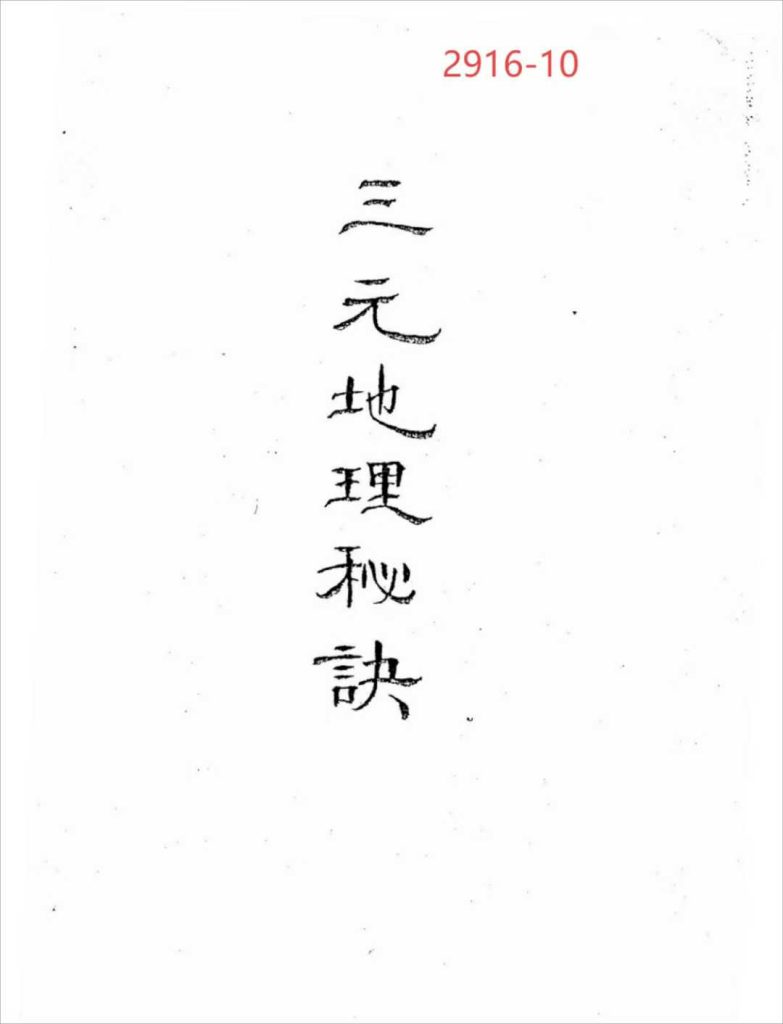 2916-10
三元地理秘訣